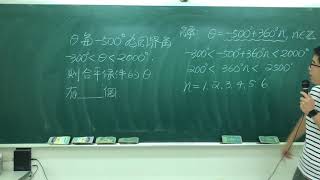 θ與-500°為同界角
-300°<θ<2000°,
則合乎條件的θ
有____個
解: θ=-500°+360°n, n∈Z
-300°<-500°+360°n<2000°
200°<360°n<2500°
n=1,2,3,4,5,6